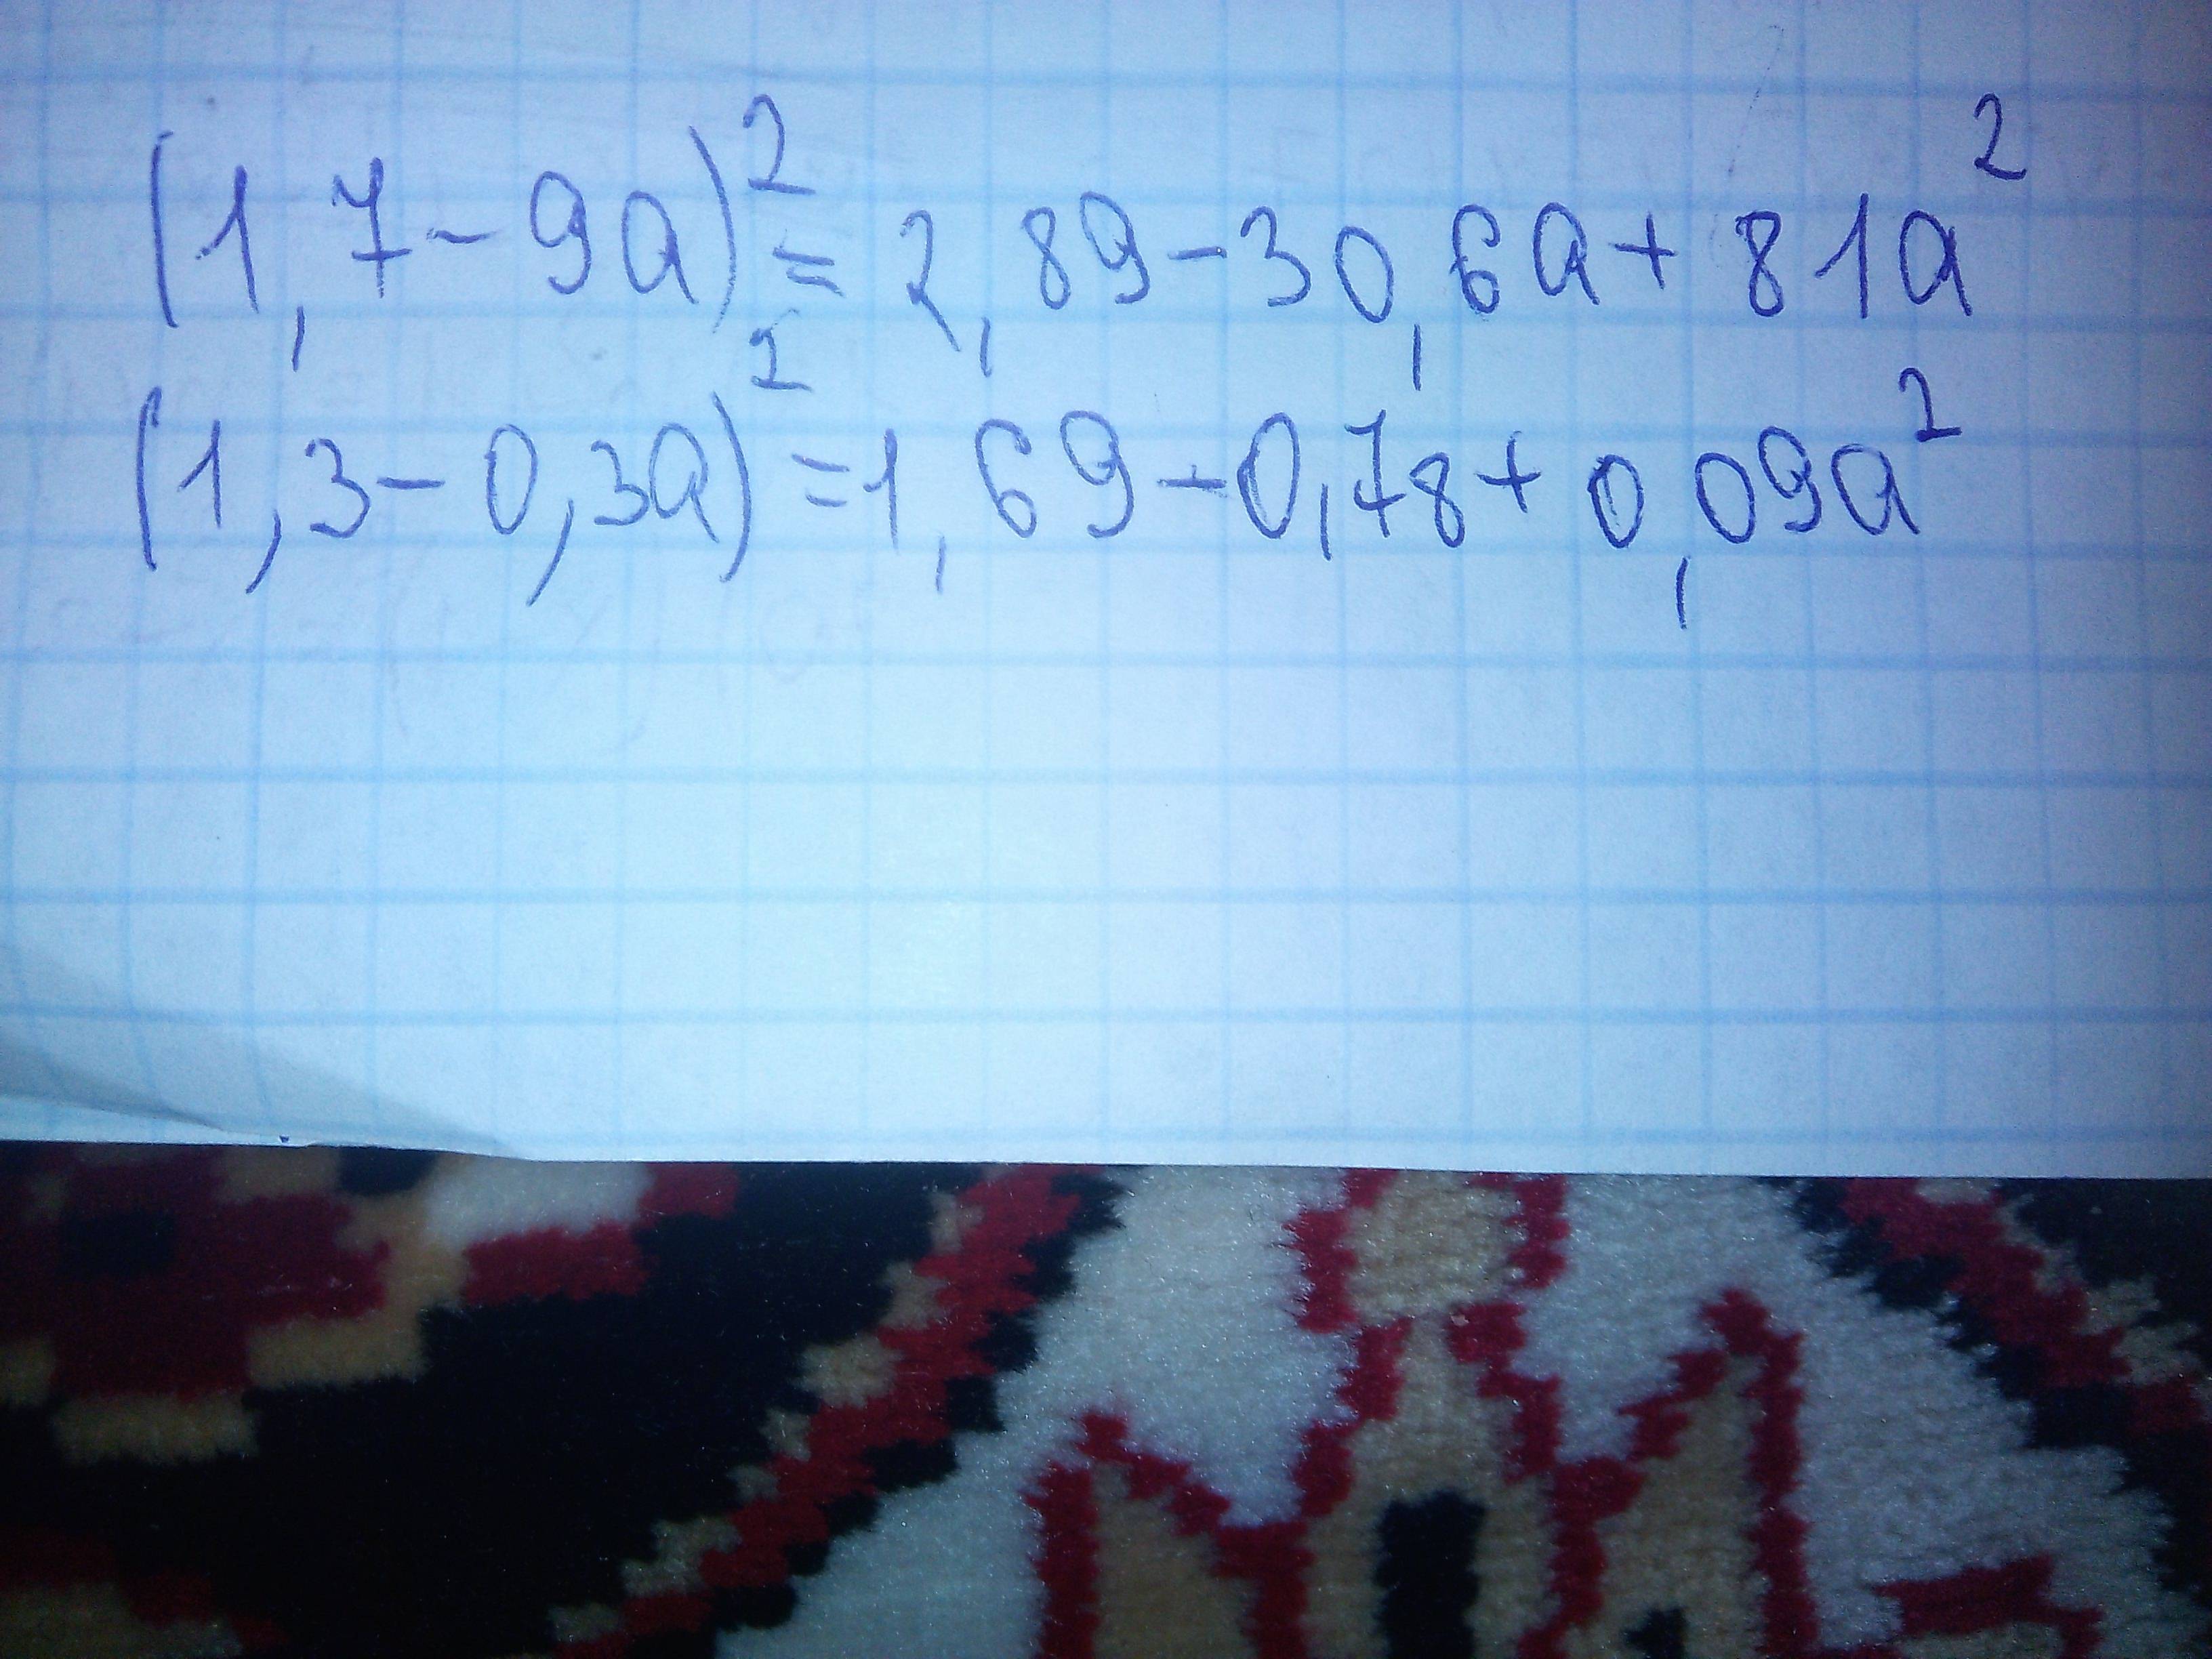 (1,7-9a)²=2,89-30,6a+81a²
(1,3-0,3a)²=1,69-0,78+0,09a²